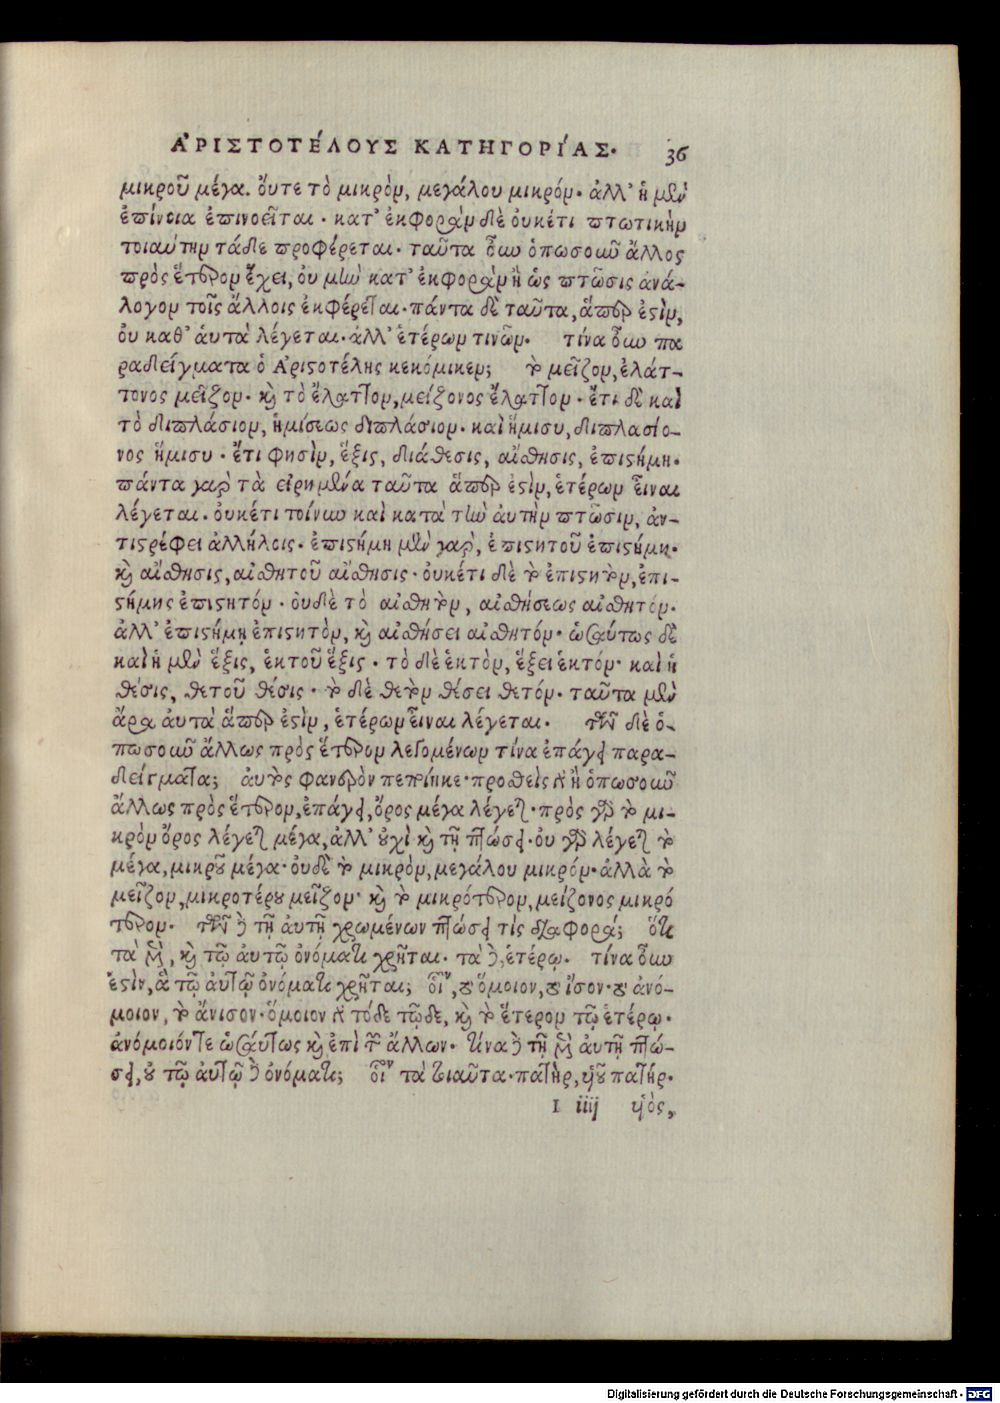 ἈΡΙΣΤΟΤΈΛΟΥΣ ΚΑΤΗΓΟΡΊΑΣ· 36
μικροῦ μέγα. ὄυτε τὸ μικρὸν, μεγάλου μικρόν· ἀλλ' ἡ μὲν
ἐπίνοια ἐπινοεῖται· κατ' ἐκφορὰν δὲ ὀυκέτι πτωτικὴν
τοιαύτην τάδε προφέρεται· ταῦτα ὄυν ὁπωσοῦν ἄλλος
πρὸς ἕτερον ἔχει, ὀυ μὴν κατ' ἐκφορὰν ἢ ὡς πτῶσις ἀνά-
λογον τοῖς ἄλλοις ἐκφέρεται· πάντα δὲ ταῦτα, ἅπερ ἐστὶν,
ὀυ καθ' ἁυτὰ λέγεται· ἀλλ' ἑτέρων τινῶν· τίνα ὄυν πα
ραδείγματα ὁ Ἀριστοτέλης κεκόμικεν; τὸ μεῖζον, ἐλάτ-
τονος μεῖζον· καὶ τὸ ἔλαττον, μείζονος ἔλαττον· ἔτι δὲ καὶ
τὸ διπλάσιον, ἡμίσεως διπλάσιον· καὶ ἥμισυ, διπλασίο-
νος ἥμισυ· ἔτι φησὶν, ἕξις, διάθεσις, αἴσθησις, ἐπιστήμη·
πάντα γὰρ τὰ εἰρημένα ταῦτα ἅπερ ἐστὶν, ἑτέρων εἶναι
λέγεται· ὀυκέτι τοίνυν καὶ κατὰ τὴν ἀυτὴν πτῶσιν, ἀν-
τιστρέφει ἀλλήλοις· ἐπιστήμη μὲν γὰρ, ἐπιστητοῦ ἐπιστήμη·
καὶ αἴσθησις, αἰσθητοῦ αἴσθησις· ὀυκέτι δὲ τὸ ἐπιστητὸν, ἐπι-
στήμης ἐπιστητόν· ὀυδὲ τὸ αἰσθητὸν, αἰσθήσεως αἰσθητόν·
ἀλλ' ἐπιστήμῃ ἐπιστητὸν, καὶ αἰσθήσει αἰσθητόν· ὡσαύτως δὲ
καὶ ἡ μὲν ἕξις, ἑκτοῦ ἕξις· τὸ δὲ ἑκτὸν, ἕξει ἑκτόν· καὶ ἡ
θέσις, θετοῦ θέσις· τὸ δὲ θετὸν θέσει θετόν· ταῦτα μὲν
ἄρα ἀυτὰ ἅπερ ἐστὶν, ἑτέρων εἶναι λέγεται· τῶν δὲ ὁ-
πωσοῦν ἄλλως πρὸς ἕτερον λεγομένων τίνα ἐπάγει παρα-
δείγματα; ἀυτὸς φανερὸν πεποίηκε· προθεὶς γὰρ ἢ ὁπωσοῦν
ἄλλως πρὸς ἕτερον, ἐπάγει, ὄρος μέγα λέγεται· πρὸς γὰρ τὸ μι-
κρὸν ὄρος λέγεται μέγα, ἀλλ' ὀυχὶ καὶ τῇ πτώσει· ὀυ γὰρ λέγεται τὸ
μέγα, μικροῦ μέγα· ὀυδὲ τὸ μικρὸν, μεγάλου μικρόν· ἀλλὰ τὸ
μεῖζον, μικροτέρου μεῖζον· καὶ τὸ μικρότερον, μείζονος μικρό
τερον· τῶν δὲ τῇ ἀυτῇ χρωμένων πτώσει τίς διαφορά; ὅτι
τὰ μὲν, καὶ τῷ ἀυτῷ ὀνόματι χρῆται· τὰ δὲ, ἑτέρῳ· τίνα ὄυν
ἐστὶν, ἃ τῷ ἀυτῷ ὀνόματι χρῆται; οἷον, τὸ ὅμοιον, τὸ ἴσον· τὸ ἀνό-
μοιον, τὸ ἄνισον· ὅμοιον γὰρ τόδε τῷδε, καὶ τὸ ἕτερον τῷ ἑτέρῳ·
ἀνόμοιόν τε ὡσαύτως καὶ ἐπὶ τῶν ἄλλων· τίνα δὲ τῇ μὲν ἀυτῇ πτώ-
σει, ὀυ τῷ ἀυτῷ δὲ ὀνόματι; οἷον τὰ τοιαῦτα· πατὴρ, ὑιοῦ πατήρ·
I iiij ὑιὸς,
Digitalisierung gefördert durch die Deutsche Forschungsgemeinschaft - DFG